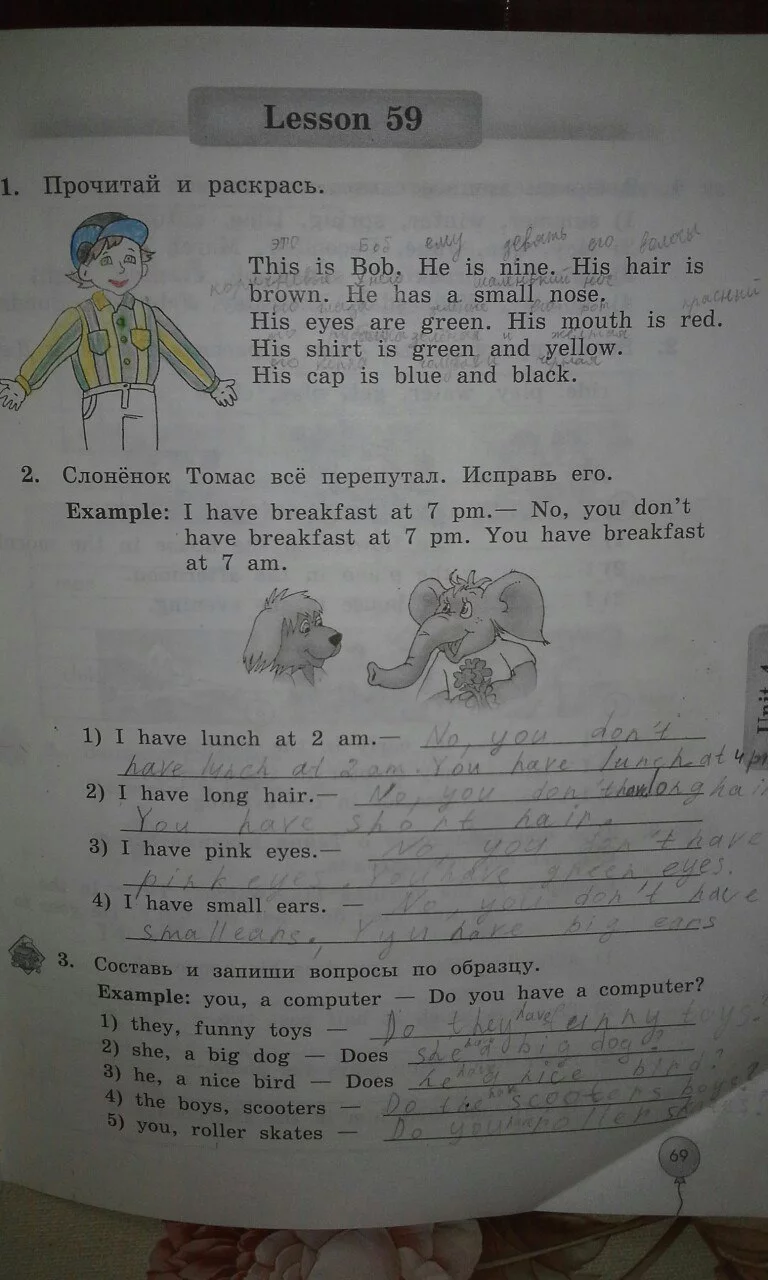 Lesson 59
1. Прочитай и раскрась.
это Боб ему девять его волосы
This is Bob. He is nine. His hair is
маленький нос
brown. He has a small nose.
его рот красный
His eyes are green. His mouth is red.
зелёная и жёлтая
His shirt is green and yellow.
его кепка чёрная
His cap is blue and black.
2. Слонёнок Томас всё перепутал. Исправь его.
Example: I have breakfast at 7 pm.— No, you don't
have breakfast at 7 pm. You have breakfast
at 7 am.
Unit 4
1) I have lunch at 2 am.— No, you don't
have lunch at 2 am. You have lunch at 4 pm
2) I have long hair.— No, you don't have long hair
You have short hair.
3) I have pink eyes.— No, you don't have
pink eyes. You have green eyes.
4) I have small ears. — No, you don't have
small ears. You have big ears
3. Составь и запиши вопросы по образцу.
Example: you, a computer — Do you have a computer?
1) they, funny toys — Do they have funny toys?
2) she, a big dog — Does she have a big dog?
3) he, a nice bird — Does he have a nice bird?
4) the boys, scooters — Do the have scooters boys?
5) you, roller skates — Do you have roller
69